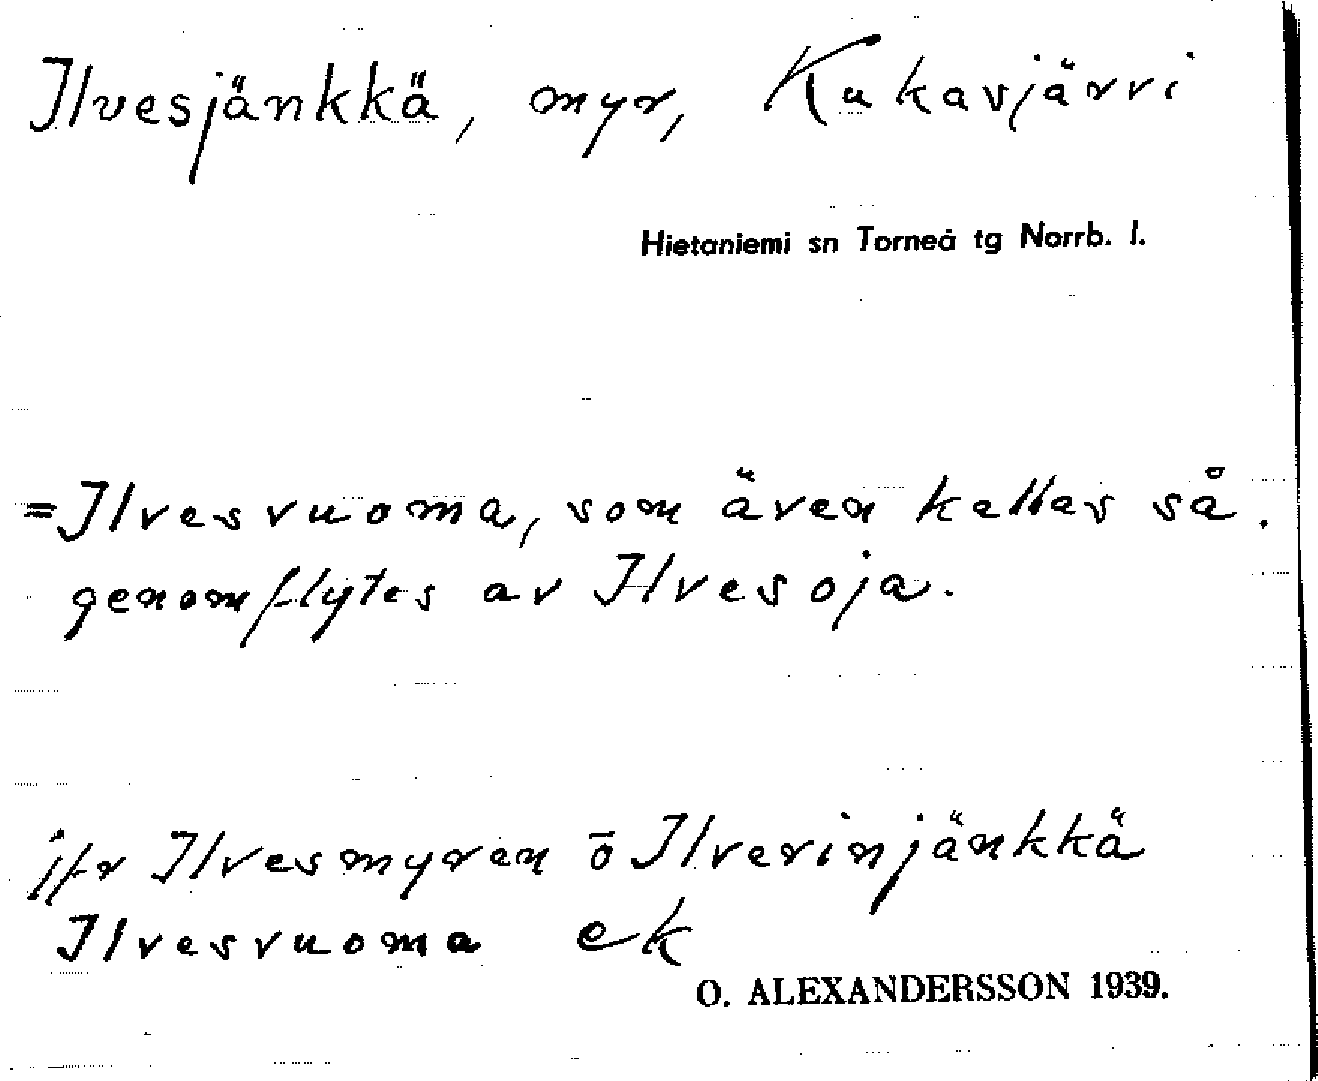 Ilvesjänkkä, myr, Kukasjärvi
Hietaniemi sn Torneå tg Norrb. l.
=Ilvesvuoma, som även kallas så.
genomflytes av Ilvesoja.
jfr Ilvesmyren o Ilvesinjänkkä
Ilvesvuoma ek
O. ALEXANDERSSON 1939.